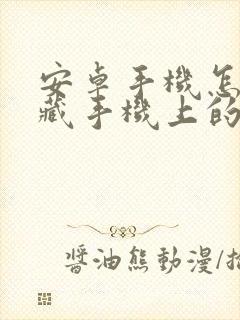 安卓手機怎
藏手機上的
醬油熊動漫/